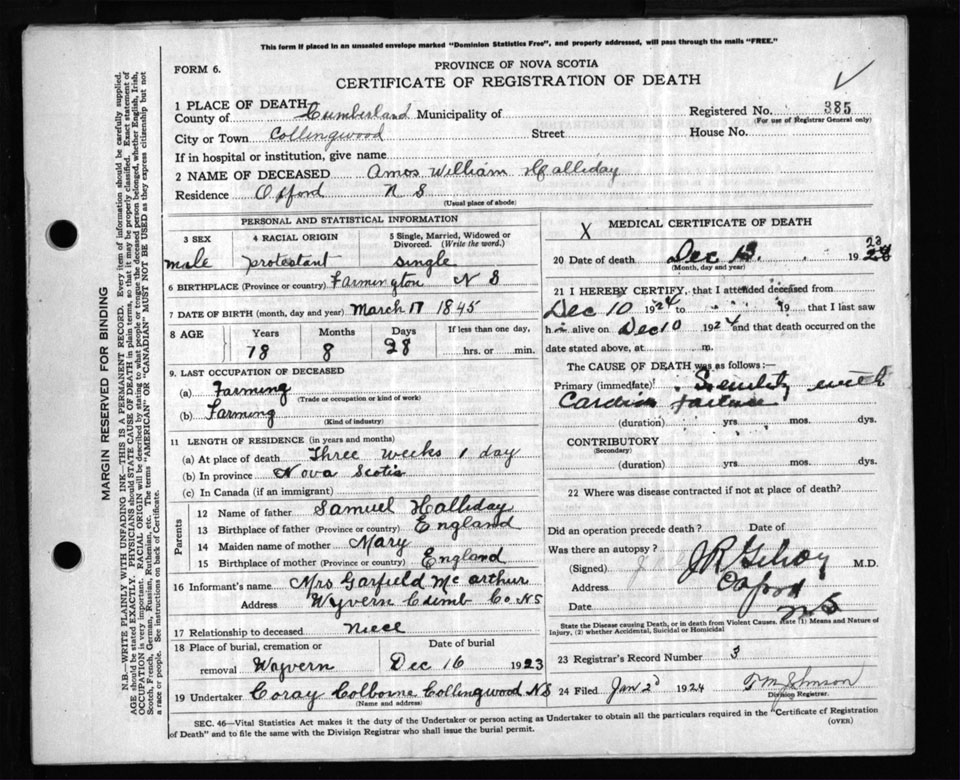 This form if placed in an unsealed envelope marked "Dominion Statistics Free", and properly addressed, will pass through the mails "FREE."
FORM 6.
PROVINCE OF NOVA SCOTIA
CERTIFICATE OF REGISTRATION OF DEATH
1 PLACE OF DEATH
County of Cumberland Municipality of
Registered No. 385
(For use of Registrar General only)
City or Town Collingwood Street House No.
If in hospital or institution, give name
2 NAME OF DECEASED Amos William Halliday
Residence Oxford N S
(Usual place of abode)
PERSONAL AND STATISTICAL INFORMATION
3 SEX
male
4 RACIAL ORIGIN
protestant
5 Single, Married, Widowed or Divorced. (Write the word.)
single
6 BIRTHPLACE (Province or country) Farmington N S
7 DATE OF BIRTH (month, day and year) March 17 1845
8 AGE Years Months Days If less than one day
78 8 28 hrs. or min.
9. LAST OCCUPATION OF DECEASED
(a) Farming
(Trade or occupation or kind of work)
(b) Farming
(Kind of industry)
11 LENGTH OF RESIDENCE (in years and months)
(a) At place of death Three weeks 1 day
(b) In province Nova Scotia
(c) In Canada (if an immigrant)
Parents
12 Name of father Samuel Halliday
13 Birthplace of father (Province or country) England
14 Maiden name of mother Mary
15 Birthplace of mother (Province or country) England
16 Informant's name Mrs Garfield McArthur
Address Wyvern Cumb Co. N S
17 Relationship to deceased Niece
18 Place of burial, cremation or Date of burial
removal Wayvern Dec 16 1923
19 Undertaker Coray Colborne Collingwood N S
(Name and address)
X MEDICAL CERTIFICATE OF DEATH
20 Date of death Dec 13. 1924 23
(Month, day and year)
21 I HEREBY CERTIFY, that I attended deceased from
Dec 10 1924 to 19 that I last saw
him alive on Dec 10 1924 and that death occurred on the
date stated above, at m.
The CAUSE OF DEATH was as follows:—
Primary (immediate) Senility with
Cardiac failure
(duration) yrs. mos. dys.
CONTRIBUTORY
(Secondary)
(duration) yrs. mos. dys.
22 Where was disease contracted if not at place of death?
Did an operation precede death? Date of
Was there an autopsy?
(Signed) J R Gilroy M.D.
Address Oxford
Date N S
State the Disease causing Death, or in death from Violent Causes, state (1) Means and Nature of
Injury, (2) whether Accidental, Suicidal or Homicidal
23 Registrar's Record Number 3
24 Filed Jan 2d 1924 Johnson
Division Registrar.
SEC. 46—Vital Statistics Act makes it the duty of the Undertaker or person acting as Undertaker to obtain all the particulars required in the "Certificate of Registration
of Death" and to file the same with the Division Registrar who shall issue the burial permit.
(OVER)
MARGIN RESERVED FOR BINDING
N.B.—WRITE PLAINLY WITH UNFADING INK—THIS IS A PERMANENT RECORD. Every item of information should be carefully supplied.
AGE should be stated EXACTLY. PHYSICIANS should STATE CAUSE OF DEATH in plain terms, so that it may be properly classified. Exact statement of
OCCUPATION is very important. RACIAL ORIGIN will be described by stating to what people or tongue the deceased person belonged, whether English, Irish,
Scotch, French, German, Russian, Ruthenian, etc. The terms "AMERICAN" OR "CANADIAN" MUST NOT BE USED as they express citizenship but not
a race or people. See instructions on back of Certificate.